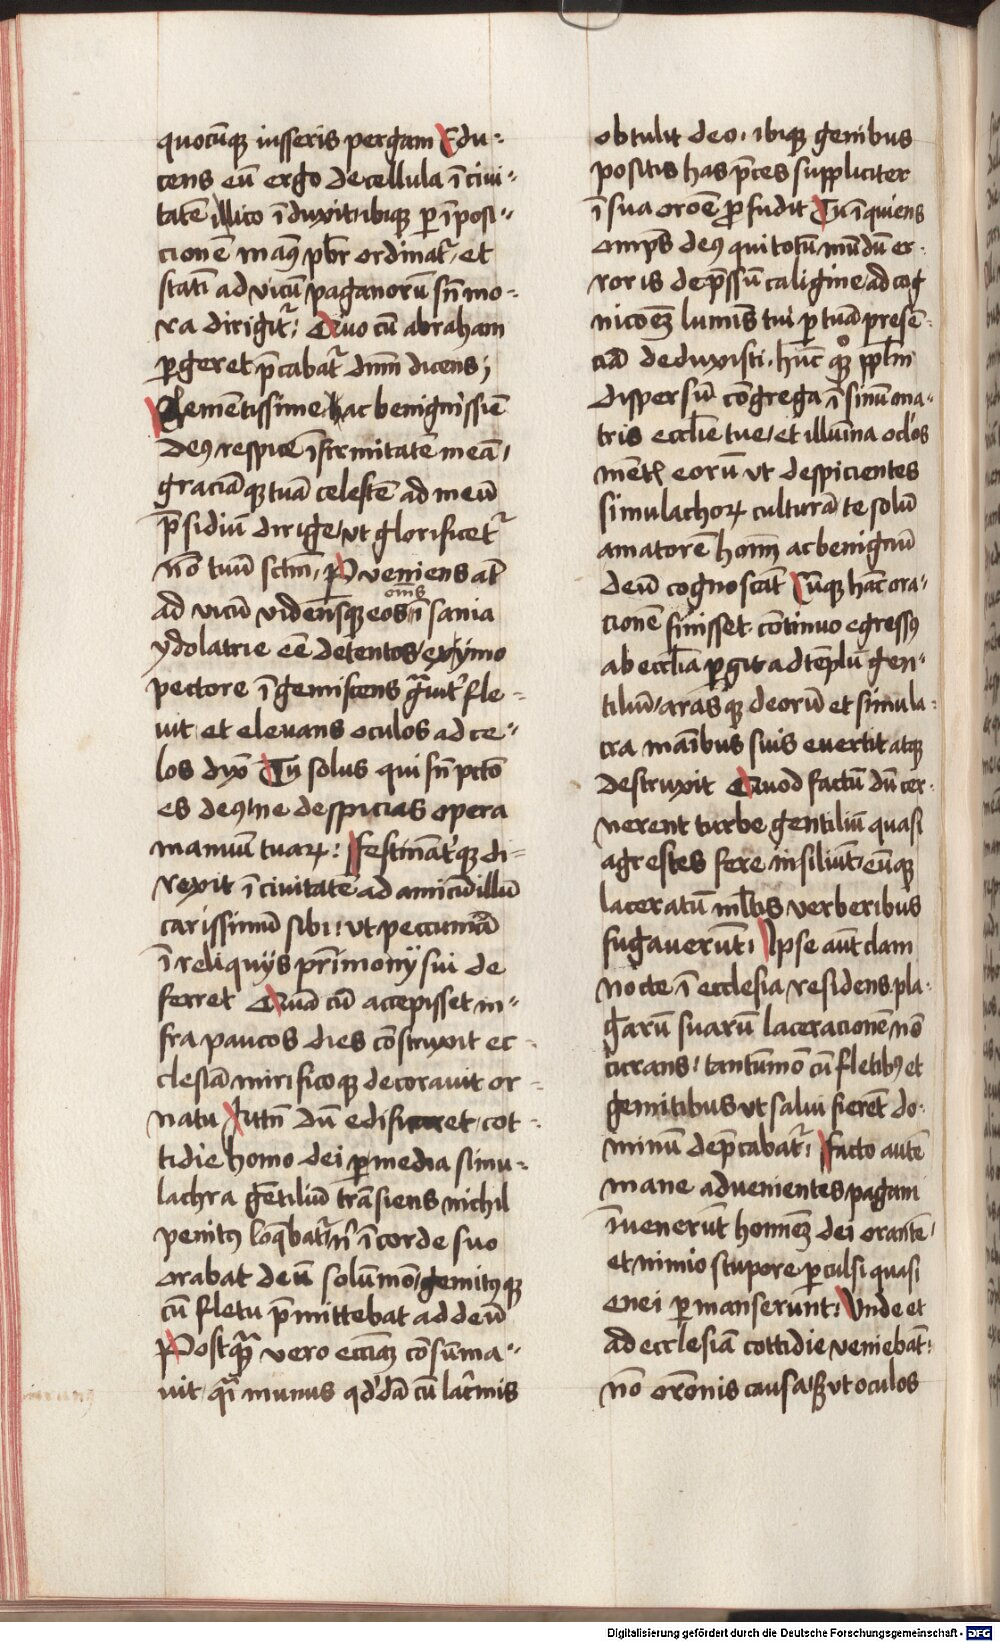 quocūqꝫ iusseris pergam Edu⸗
cens eū ergo de cellula ī ciui⸗
tatē illico īduxit ibiqꝫ ꝑ īposi⸗
cionē manꝰ pbr̄ ordinat᷑, et
statī ad vicū paganorū sn̄ mo⸗
ra dirigit᷑: Quo cū abraham
ꝑgeret p̄cabat᷑ dn̄m dicens;
Clementissime ac benignissiē
deꝰ respice īfirmitatē meā,
graciāqꝫ tuā celestē ad meū
p̄sidiū dirige, vt glorificet᷑
nō tuū sctm̄, Perueniens at̄
ad vicū vidensqꝫ eos om̄s ī sania
ydolatrie eē detentos, ex ymo
pectore īgemiscens g̃uit᷑ fle⸗
uit et eleuans oculos ad ce⸗
los dix̄ Tu solus qui sn̄ pctō
es deꝰ ne despicias opera
manuum tuaꝝ: ffestinat᷑qꝫ di⸗
rexit ī ciuitatē ad amicū illū
carissimū sibi: vt peccuniā
ī reliquijs p̄rimonij sui de
ferret Quā cū accepisset in⸗
fra paucos dies cōstruxit ec⸗
clesiā mirificoqꝫ decorauit or⸗
natu Jntn̄ dū edificaret, cot⸗
tidie homo dei ꝑ media simu⸗
lachra gētiliū trāsiens nichil
penitꝰ loq̄bat᷑ n̄ ī corde suo
orabat deū solūmō, gemitꝰqꝫ
cū fletu p̄mittebat ad deū
Postqꝫ vero ecciaꝫ cōsūma⸗
uit q̄i munus qd̄dā cū lac̄mis
obtulit deo, ibiqꝫ genibus
positis has p̄ces suppliciter
ī sua oroē ꝓfudit Tu īquiens
omp̄s deꝰ qui totū mūdū er⸗
roris dep̄ssū caligine, ad cog
nicoēꝫ lumīs tui ꝑ tuā presē⸗
ciā deduxisti, hūc qꝫ ppl̄m
dispersū cōgrega ī sinū ma⸗
tris ecclīe tue, et illūina oclōs
mētꝭ eorū vt despicientes
simulachoꝝ culturā te solū
amatorē hoīm ac benignū
deū cognoscāt Cūqꝫ hāc ora⸗
cionē finisset, cōtinuo egressꝰ
ab ecclīa ꝑgit ad tēplū gen⸗
tiliū, arasqꝫ deorū et simula⸗
cra maībus suis euertit atqꝫ
destruxit Quod factū dū cer⸗
nerent turbe gentiliū quasi
agrestes fere insiliūt, eūqꝫ
laceratū ml̄tis verberibus
fugauerūt: Ipse aūt clam
nocte ī ecclesia residens, pla⸗
garū suarū laceracionē nō
curans, tantūmō cū fletibꝰ et
gemitibus vt salui fierēt do⸗
minū dep̄cabat᷑: ffacto autē
mane aduenientes pagani
īuenerūt homīeꝫ dei orantē,
et nimio stupore ꝑculsi quasi
enei ꝑmanserunt: Vnde et
ad ecclesiā cottidie veniebāt:
nō orōnis causa, sꝫ vt oculos
Digitalisierung gefördert durch die Deutsche Forschungsgemeinschaft - DFG